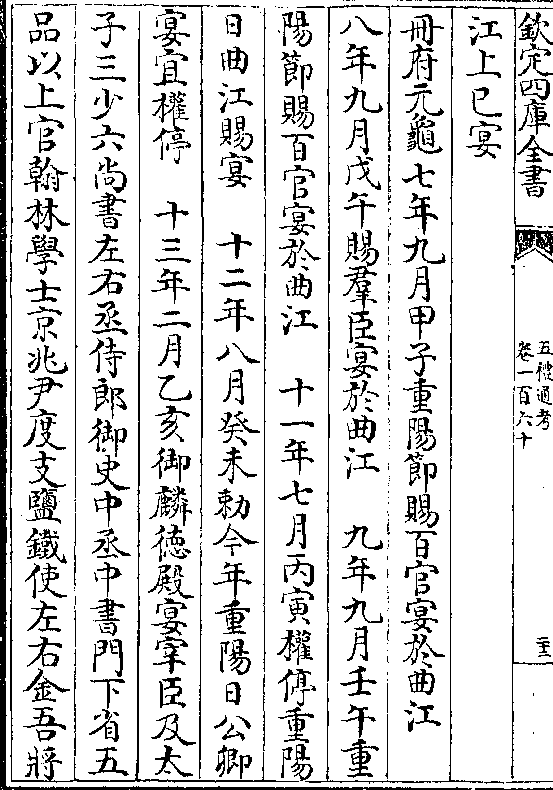 欽定四庫全書
五禮通考
卷一百六十
江上巳宴
冊府元龜七年九月甲子重陽節賜百官宴於曲江
八年九月戊午賜羣臣宴於曲江 九年九月壬午重
陽節賜百官宴於曲江 十一年七月丙寅權停重陽
日曲江賜宴 十二年八月癸未勅今年重陽日公卿
宴宜權停 十三年二月乙亥御麟徳殿宴宰臣及太
子三少六尚書左右丞侍郎御史中丞中書門下省五
品以上官翰林學士京兆尹度支鹽鐵使左右金吾將